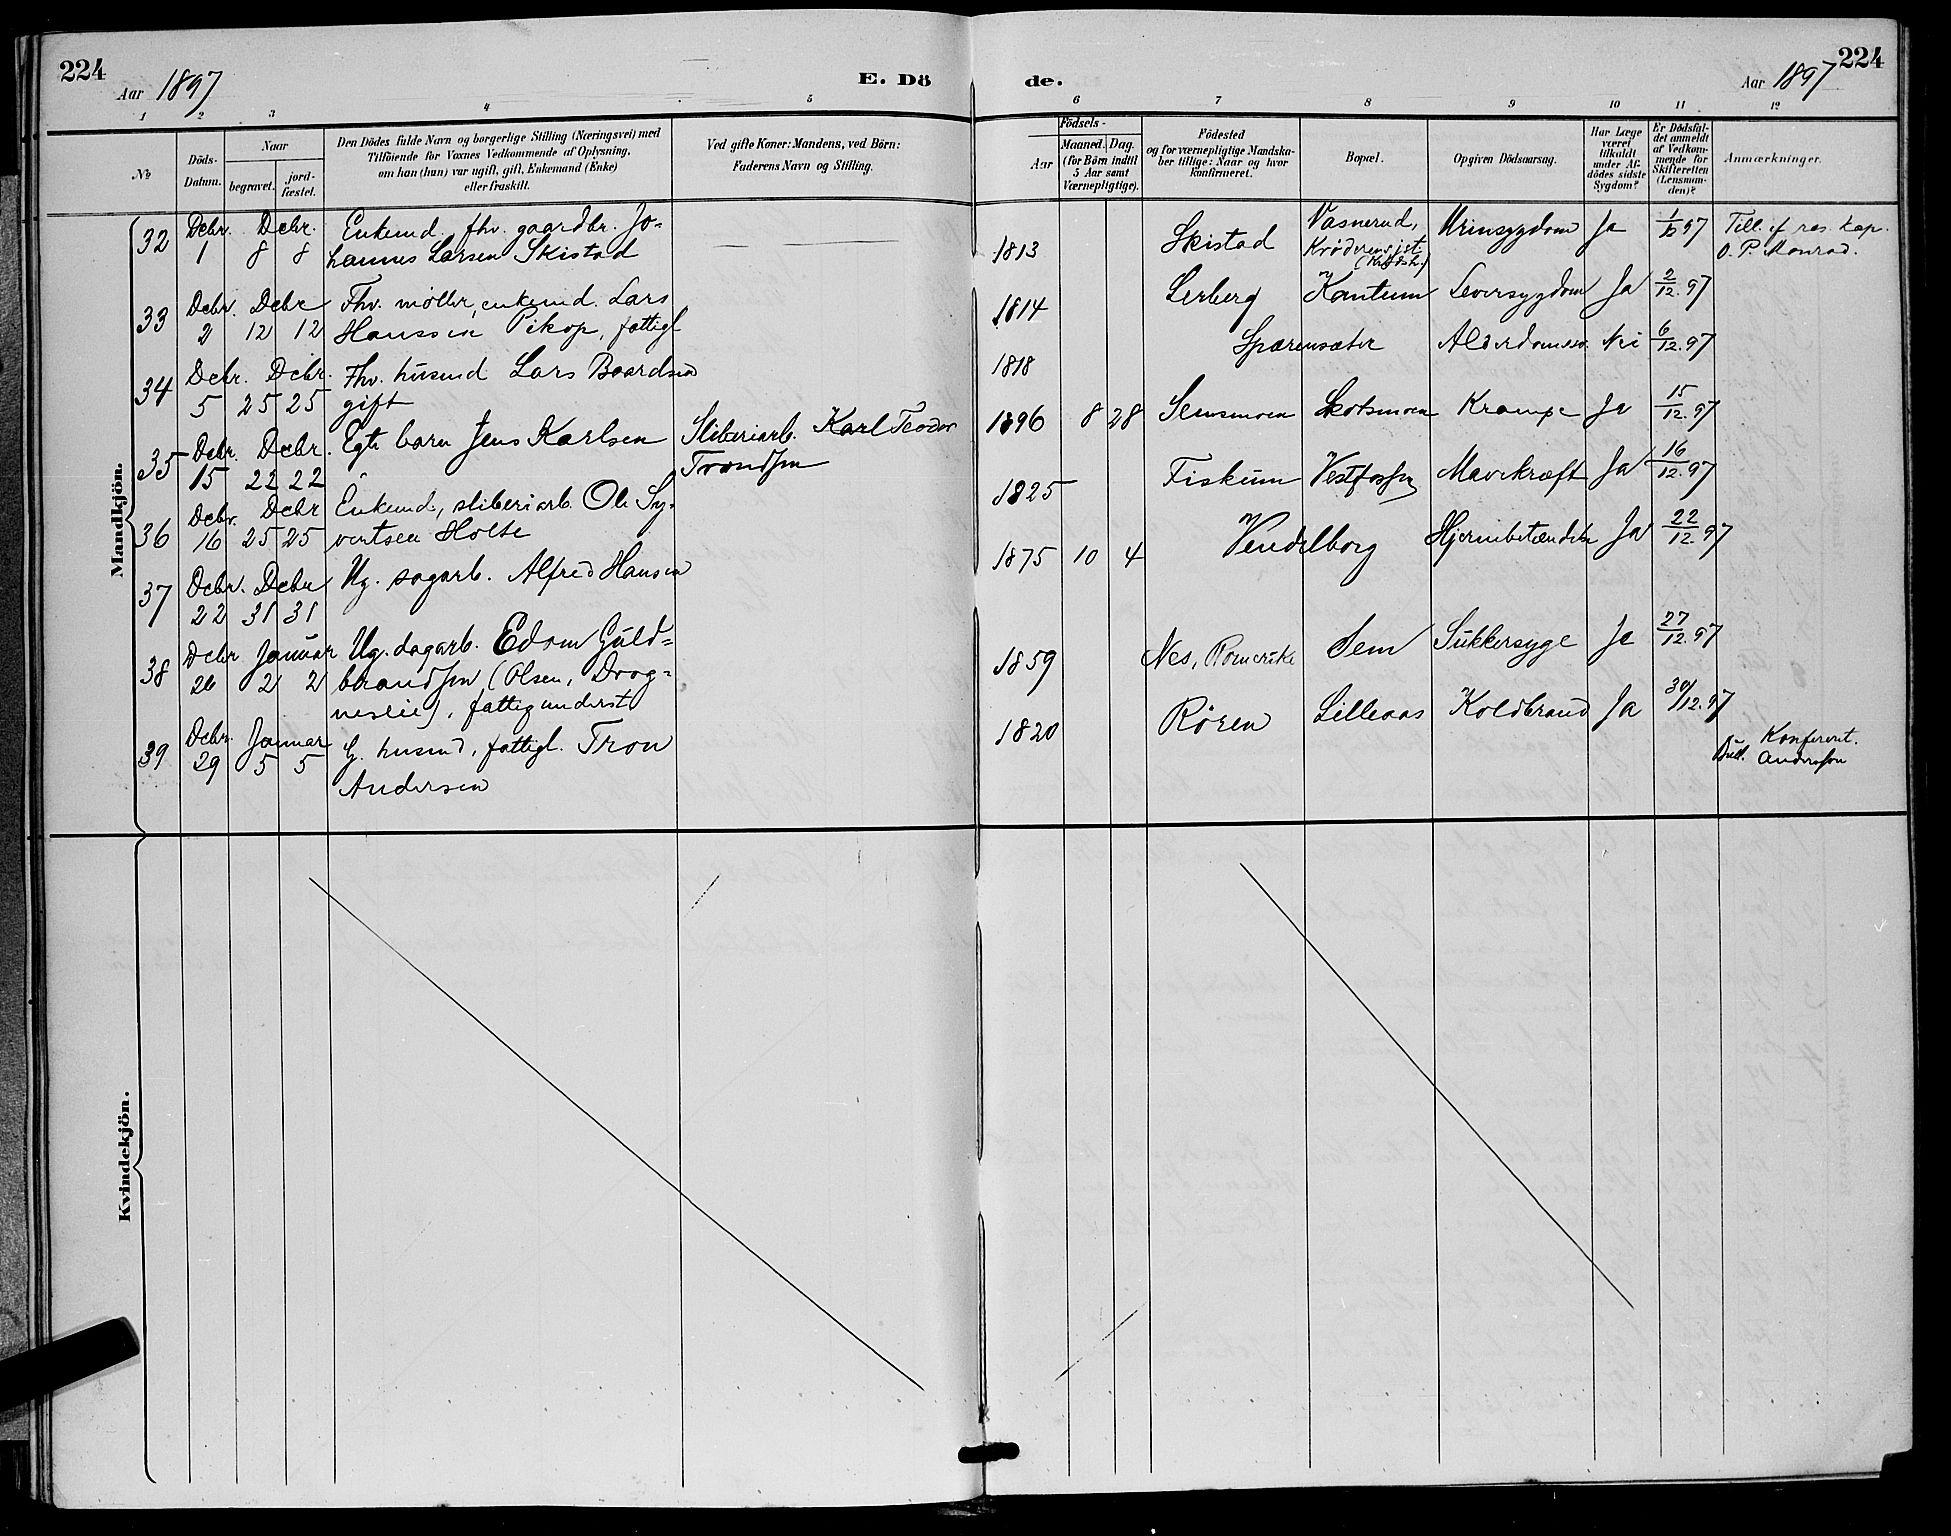 224
Aar 1897
E. Dö
de.
Aar 1897
224
1 2 3 4 5 6 7 8 9 10 11 12
№
Döds-
Datum.
Naar
begravet.
jord-
fæstet.
Den Dödes fulde Navn og borgerlige Stilling (Næringsvei) med
Tilföiende for Voxnes Vedkommende af Oplysning,
om han (hun) var ugift, gift, Enkemand (Enke)
eller fraskilt.
Ved gifte Koner: Mandens, ved Börn:
Faderens Navn og Stilling.
Födsels-
Aar
Maaned. Dag.
(for Börn indtil
5 Aar samt
Værnepligtige).
Födested
og for værnepligtige Mandska-
ber tillige: Naar og hvor
konfirmeret.
Bopæl.
Opgiven Dödsaarsag.
Har Læge
været
tilkaldt
under Af-
dödes sidste
Sygdom?
Er Dödsfal-
det anmeldt
af Vedkom-
mende for
Skifteretten
(Lensman-
den)?
Anmærkninger.
Mandkjön.
32 Dcbr. 1 Dcbr. 8 8 Enkemd. fhv. gaardbr. Jo-
hannes Larsen Skistad
1813 Skistad Vasnerud,
Kröderens ist.
Urinsygdom Ja 1/12 97 Till. af res. kap.
O. P. Monrad.
33 Dcbr. 2 Dcbr 12 12 Fhv. møller, enkemd. Lars
Hanssen Pikop, fattigl
1814 Lerberg Kantum Leversygdom Ja 2/12.97
34 Dcbr. 5 Dcbr. 25 25 Fhv. husmd Lars Baardsen
gift
1818 Spærensæter Alderdomssv. Nei 6/12.97
35 Dcbr. 15 Dcbr. 22 22 Egte barn Jens Karlsen Sliberiarb. Karl Teodor
Trondsen
1896 8 28 Semsmoen Skotsmoen Krampe Ja 15/12.97
36 Dcbr. 16 Dcbr 25 25 Enkemd., sliberiarb. Ole Sy-
vertsen Holte
1825 Fiskum Vestfossen Mavekræft Ja 16/12.97
37 Dcbr. 22 Dcbr 31 31 Ug. sagarb. Alfred Hansen
1875 10 4 Vendelborg Hjernebetændelse Ja 22/12.97
38 Dcbr 26 Januar 2 2 Ug. dagarb. Edom Guld=
brandsen (Olsen, Drog=
neslie), fattigunderst
1859 Nes, Romerike Sem Sukkersyge Ja 27/12.97
39 Dcbr. 29 Januar 5 5 G. husmd, fattigl. Tron
Andersen
1820 Rören Lilleaas Koldbrand Ja 30/12.97
Konferent.
Andersen
Kvindekjön.